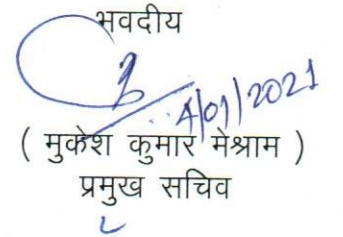 भवदीय
4/01/2021
( मुकेश कुमार मेश्राम )
प्रमुख सचिव